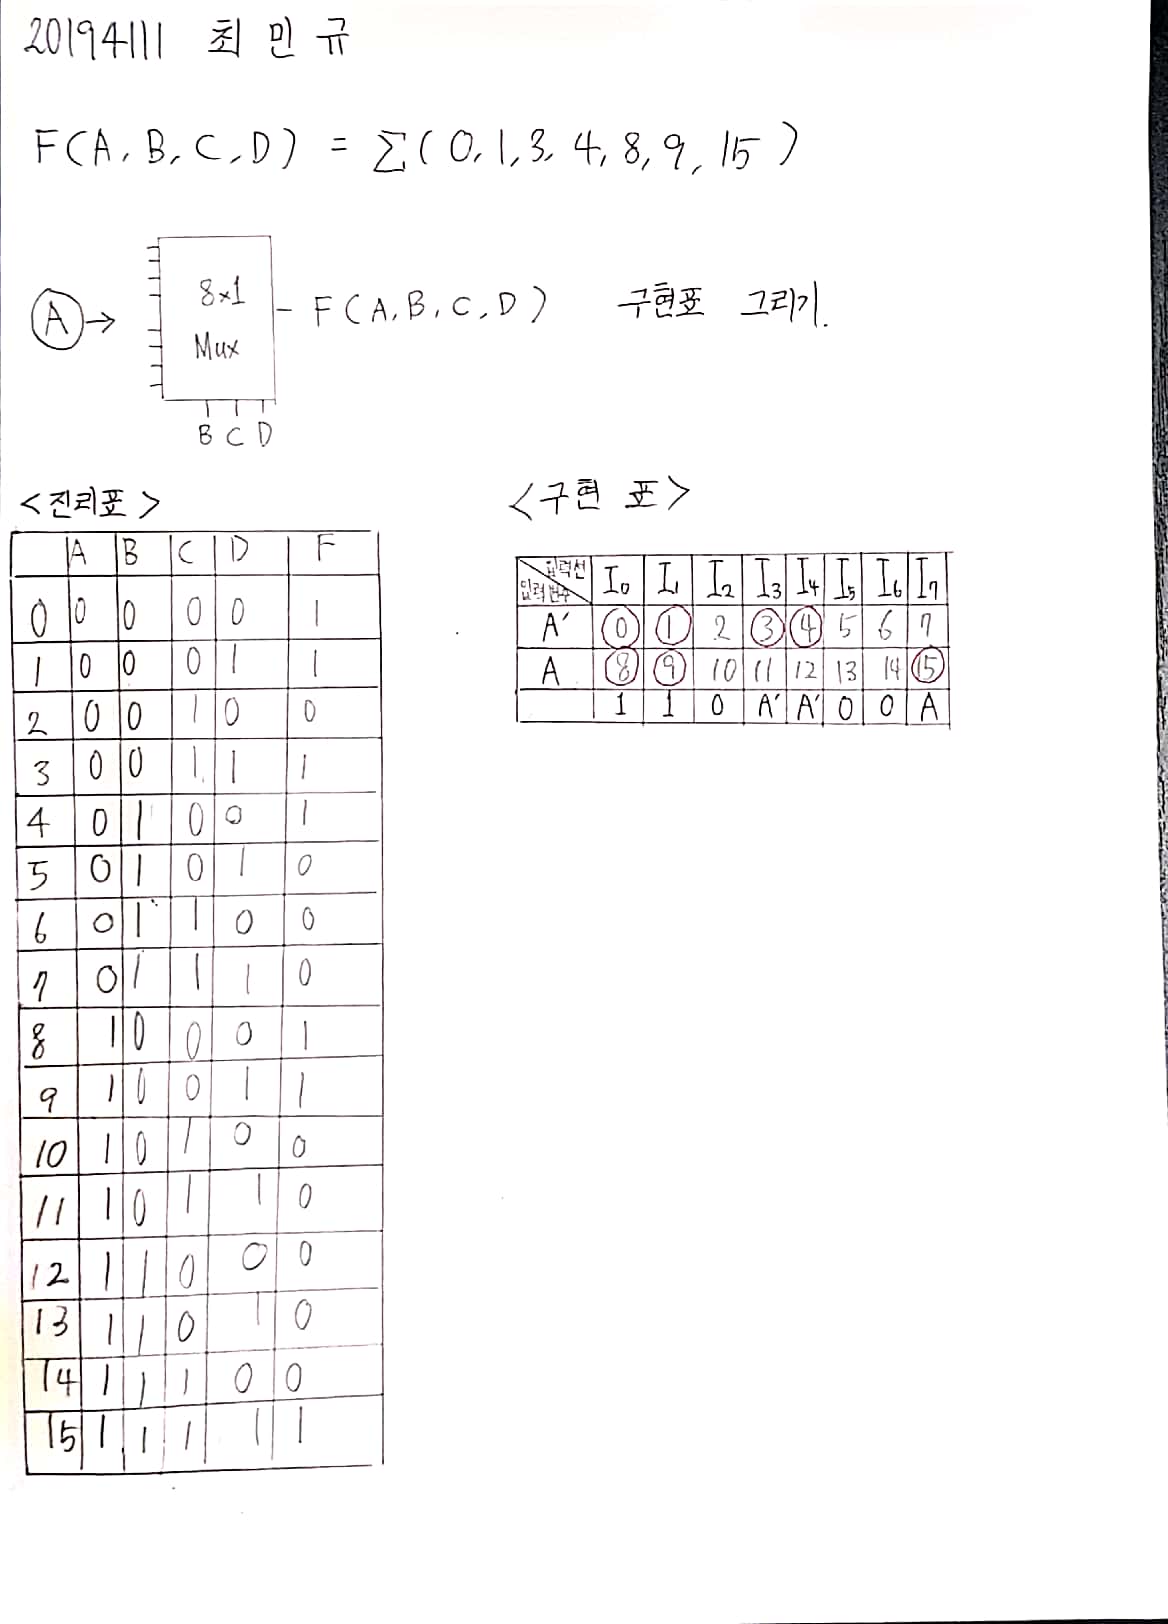 20194111 최민규
F(A, B, C, D) = Σ(0, 1, 3, 4, 8, 9, 15)
A → 8×1 Mux F(A, B, C, D) 구현표 그리기.
B C D
<진리표>
A B C D F
0 0 0 0 0 1
1 0 0 0 1 1
2 0 0 1 0 0
3 0 0 1 1 1
4 0 1 0 0 1
5 0 1 0 1 0
6 0 1 1 0 0
7 0 1 1 1 0
8 1 0 0 0 1
9 1 0 0 1 1
10 1 0 1 0 0
11 1 0 1 1 0
12 1 1 0 0 0
13 1 1 0 1 0
14 1 1 1 0 0
15 1 1 1 1 1
<구현 표>
입력선 입력변수 I₀ I₁ I₂ I₃ I₄ I₅ I₆ I₇
A′ 0 1 2 3 4 5 6 7
A 8 9 10 11 12 13 14 15
1 1 0 A′ A′ 0 0 A